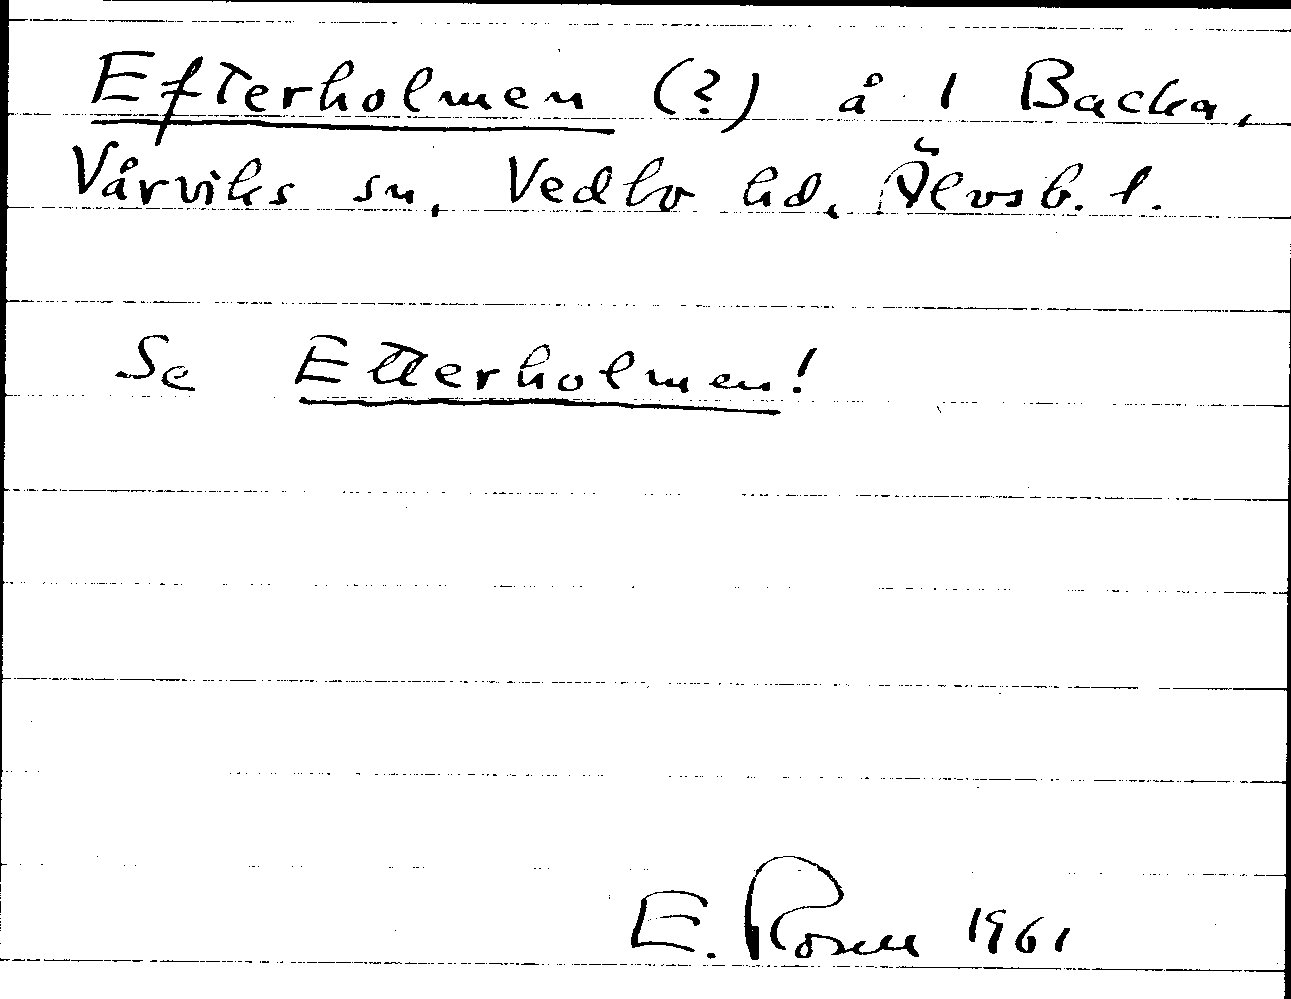 Efterholmen (?) å 1 Backa,
Vårviks sn, Vedbo hd, Älvsb. l.
Se Etterholmen!
E. Rosen 1961